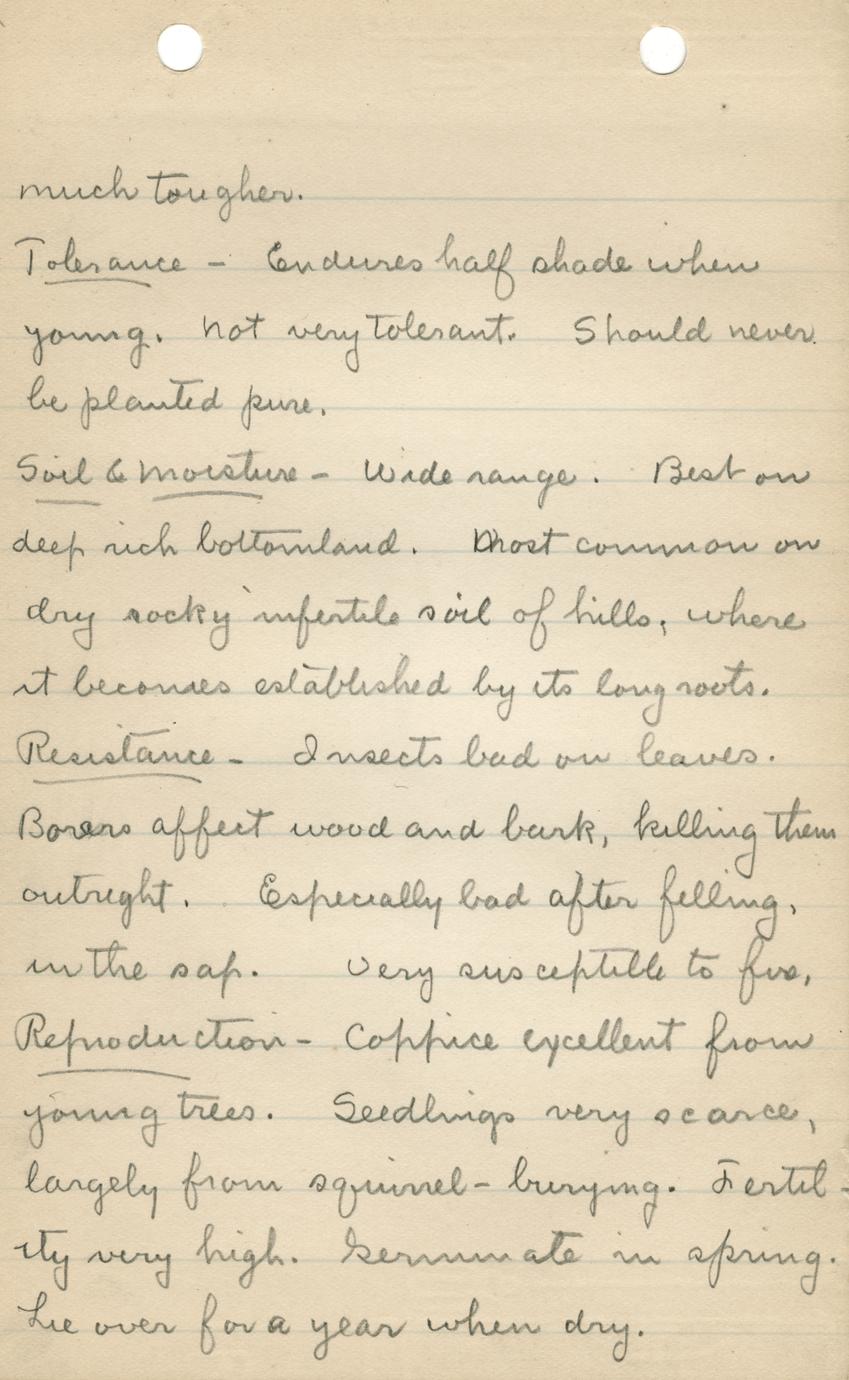 much tougher.
Tolerance - Endures half shade when
young. Not very tolerant. Should never
be planted pure.
Soil & Moisture - Wide range. Best on
deep rich bottomland. Most common on
dry rocky infertile soil of hills, where
it becomes established by its long roots.
Resistance - Insects bad on leaves.
Borers affect wood and bark, killing them
outright. Especially bad after felling,
in the sap. Very susceptible to fire,
Reproduction - Coppice excellent from
young trees. Seedlings very scarce,
largely from squirrel-burying. Fertil-
ity very high. Germinate in spring.
Lie over for a year when dry.